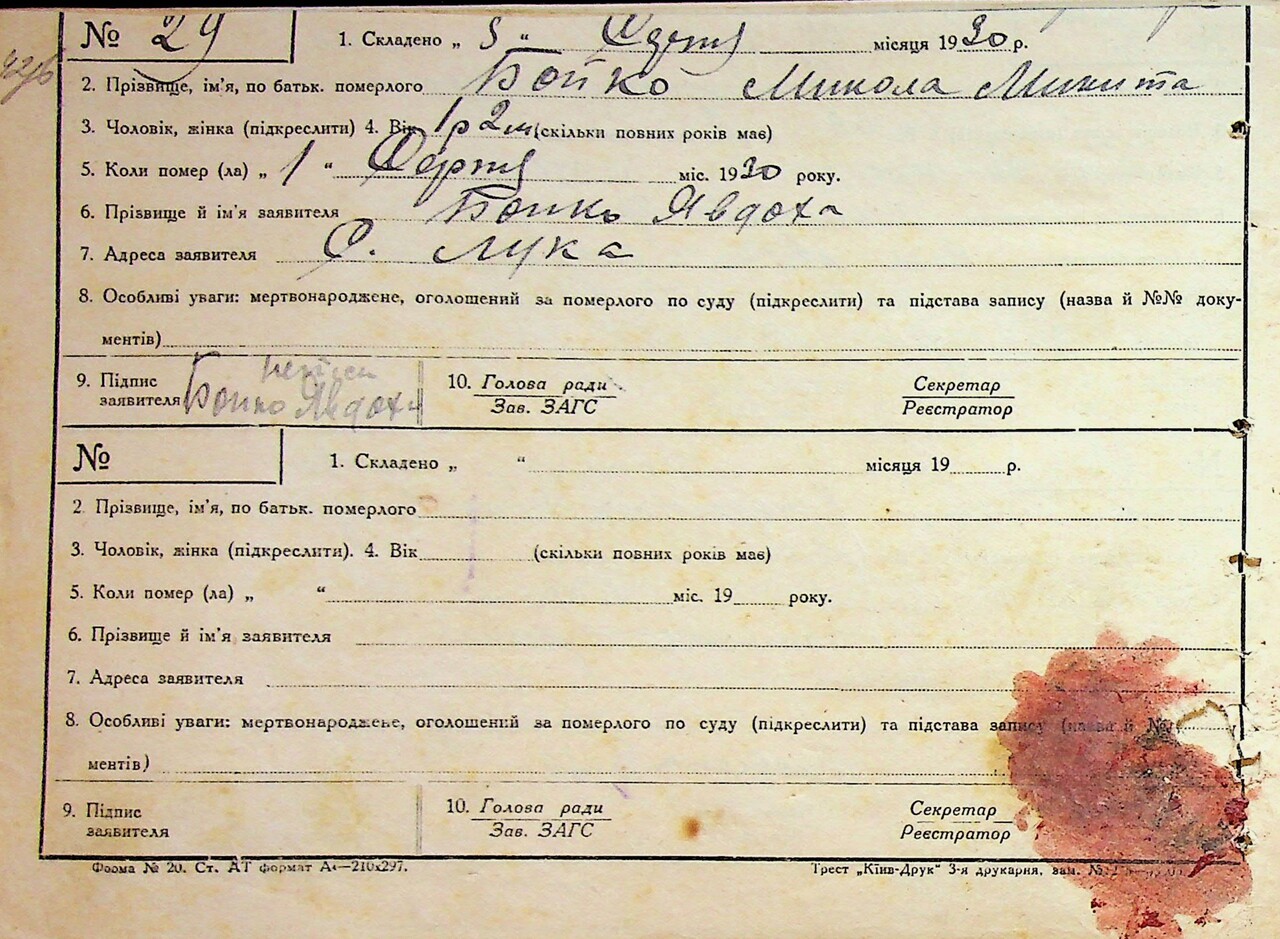 № 29 1. Складено „ 3 “ Серпня місяця 1930 р.
2. Прізвище, ім'я, по батьк. померлого Бойко Микола Микита
3. Чоловік, жінка (підкреслити) 4. Вік 1р 2м (скільки повних років має)
5. Коли помер (ла) „ 1 “ Серпня міс. 1930 року.
6. Прізвище й ім'я заявителя Бойко Явдоха
7. Адреса заявителя С. Лука
8. Особливі уваги: мертвонароджене, оголошений за померлого по суду (підкреслити) та підстава запису (назва й №№ доку-
ментів)
9. Підпис заявителя Бойко Явдохи 10. Голова ради Секретар
Зав. ЗАГС Реєстратор
№ 1. Складено „ “ місяця 19 р.
2 Прізвище, ім'я, по батьк. померлого
3. Чоловік, жінка (підкреслити). 4. Вік (скільки повних років має)
5. Коли помер (ла) „ “ міс. 19 року.
6. Прізвище й ім'я заявителя
7. Адреса заявителя
8. Особливі уваги: мертвонароджене, оголошений за померлого по суду (підкреслити) та підстава запису (назва й №
ментів)
9. Підпис заявителя 10. Голова ради Секретар
Зав. ЗАГС Реєстратор
Форма № 20. Ст. АТ формат А4—210x297. Трест „Київ-Друк“ 3-я друкарня, зам. №